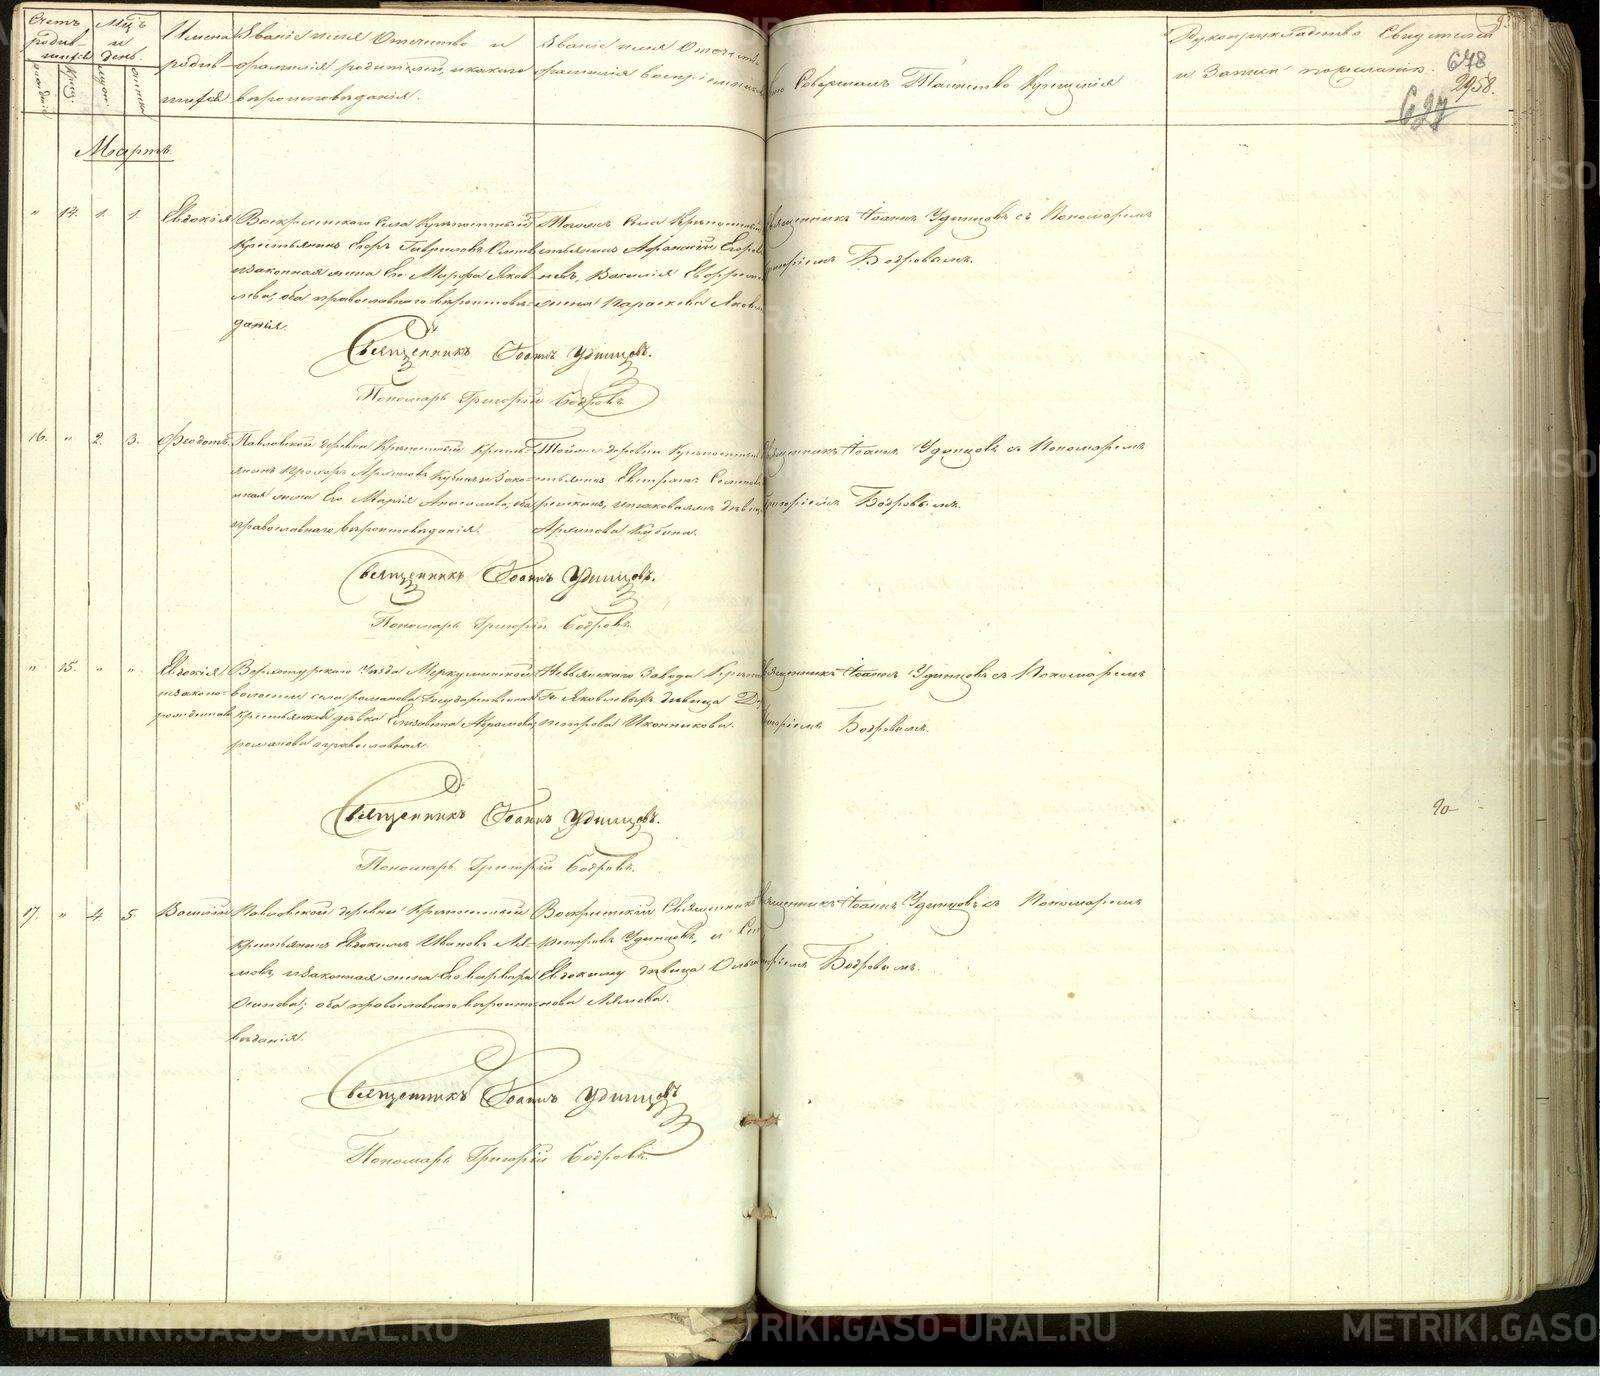 Счетъ родив-шихся
Мѣ-цъ и день
Имена родив-шихся
Званіе имя Отчество и фамилія родителей, и какаго вѣроисповѣданія.
Званіе имя Отчество фамилія воспріемниковъ
Кто Совершалъ Таинство Крещенія
Рукоприкладство Свидѣтелей и Записи по желанію.
678
2958.
627
Мартъ.
" 14. 1. 1. Евдокія
Воскресенскаго Села Крѣпостный
Крестьянинъ Егоръ Гавриловъ
и законная жена Его Марфа Яков-
лева, оба православнаго вѣроисповѣ-
данія.
Тогожъ Села Крѣпостный
Крестьянинъ Афанасій Егоровъ
жена Параскева Яковл
Священникъ Іоаннъ Удинцовъ съ Пономаремъ
Григоріемъ Бодровымъ.
Священникъ Іоаннъ Удинцовъ.
Пономарь Григорій Бодровъ
16. " 2. 3. Феодотъ.
Павловской деревни Крѣпостный Кресть-
янинъ Прохоръ Архиповъ Кубинъ и Зако-
нная жена Его Марія Аѳонасьева, оба
православнаго вѣроисповѣданія.
Тойже деревни Крѣпостный
Архипова Кубина.
Священникъ Іоаннъ Удинцовъ съ Пономаремъ
Григоріемъ Бодровымъ.
Священникъ Іоаннъ Удинцовъ.
Пономарь Григорій Бодровъ.
" 15. " " Евдокія
незаконо-
рожденная
Верхотурскаго Уѣзда Меркушинской
волости села романова Государственная
крестьянская дѣвка Елизавета Абрамова
романова православная.
Невьянскаго Завода Крѣпост
Гг. Яковлевыхъ дѣвица
петрова Иконникова.
Священникъ Іоаннъ Удинцовъ съ Пономаремъ
Григоріемъ Бодровымъ.
Священникъ Іоаннъ Удинцовъ.
Пономарь Григорій Бодровъ.
17. " 4. 5. Василій
Павловской деревни Крѣпостной
Крестьянинъ Евдокимъ Ивановъ Ля-
мовъ, и законная жена Его варвара
Осипова; оба православнаго вѣроиспо-
вѣданія.
Воскресенскій Священникъ
петровъ Удинцовъ, и Сел
Евдокиму дѣвица Ольга
нова Лямова.
Священникъ Іоаннъ Удинцовъ съ Пономаремъ
Григоріемъ Бодровымъ.
Священникъ Іоаннъ Удинцовъ
Пономарь Григорій Бодровъ.
METRIKI.GASO-URAL.RU
METRIKI.GASO-URAL.RU
METRIKI.GASO